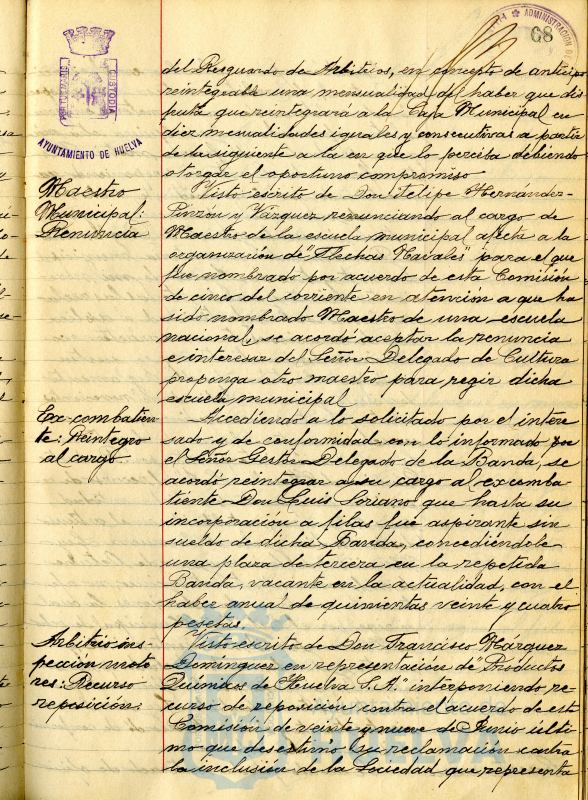 ADMINISTRACION D
68
CUSTODIA
AYUNTAMIENTO DE HUELVA
del Resguardo de Arbitrios, en concepto de anticipo
reintegrable una mensualidad del haber que dis-
fruta que reintegrara a la Caja Municipal en
diez mensualidades iguales y consecutivas a partir
de la siguiente a la en que lo perciba debiendo
otorgar el oportuno compromiso
Maestro
Municipal:
Renuncia
Visto escrito de Don Felipe Hernández-
Pinzón y Vázquez renunciando al cargo de
Maestro de la escuela municipal afecta a la
organización de "Flechas Navales" para el que
fue nombrado por acuerdo de esta Comisión
de cinco del corriente en atención a que ha
sido nombrado Maestro de una escuela
nacional, se acordó aceptar la renuncia
e interesar del Señor Delegado de Cultura
proponga otro maestro para regir dicha
escuela municipal
Ex-combatien-
te: Reintegro
al cargo.
Accediendo a lo solicitado por el intere-
sado y de conformidad con lo informado por
el Señor Gestor Delegado de la Banda, se
acordó reintegrar a su cargo al excomba-
tiente Don Luis Soriano que hasta su
incorporación a filas fué aspirante sin
sueldo de dicha Banda, concediéndole
una plaza de tercera en la repetida
Banda, vacante en la actualidad, con el
haber anual de quinientas veinte y cuatro
pesetas.
Arbitrio ins-
peccion moto
res: Recurso
reposición:
Visto escrito de Don Francisco Marquez
Dominguez en representación de "Productos
Químicos de Huelva S.A." interponiendo re-
curso de reposición contra el acuerdo de esta
Comisión de veinte y nueve de Junio últi-
mo que desestimó su reclamación contra
la inclusión de la Sociedad que representa
HUELVA